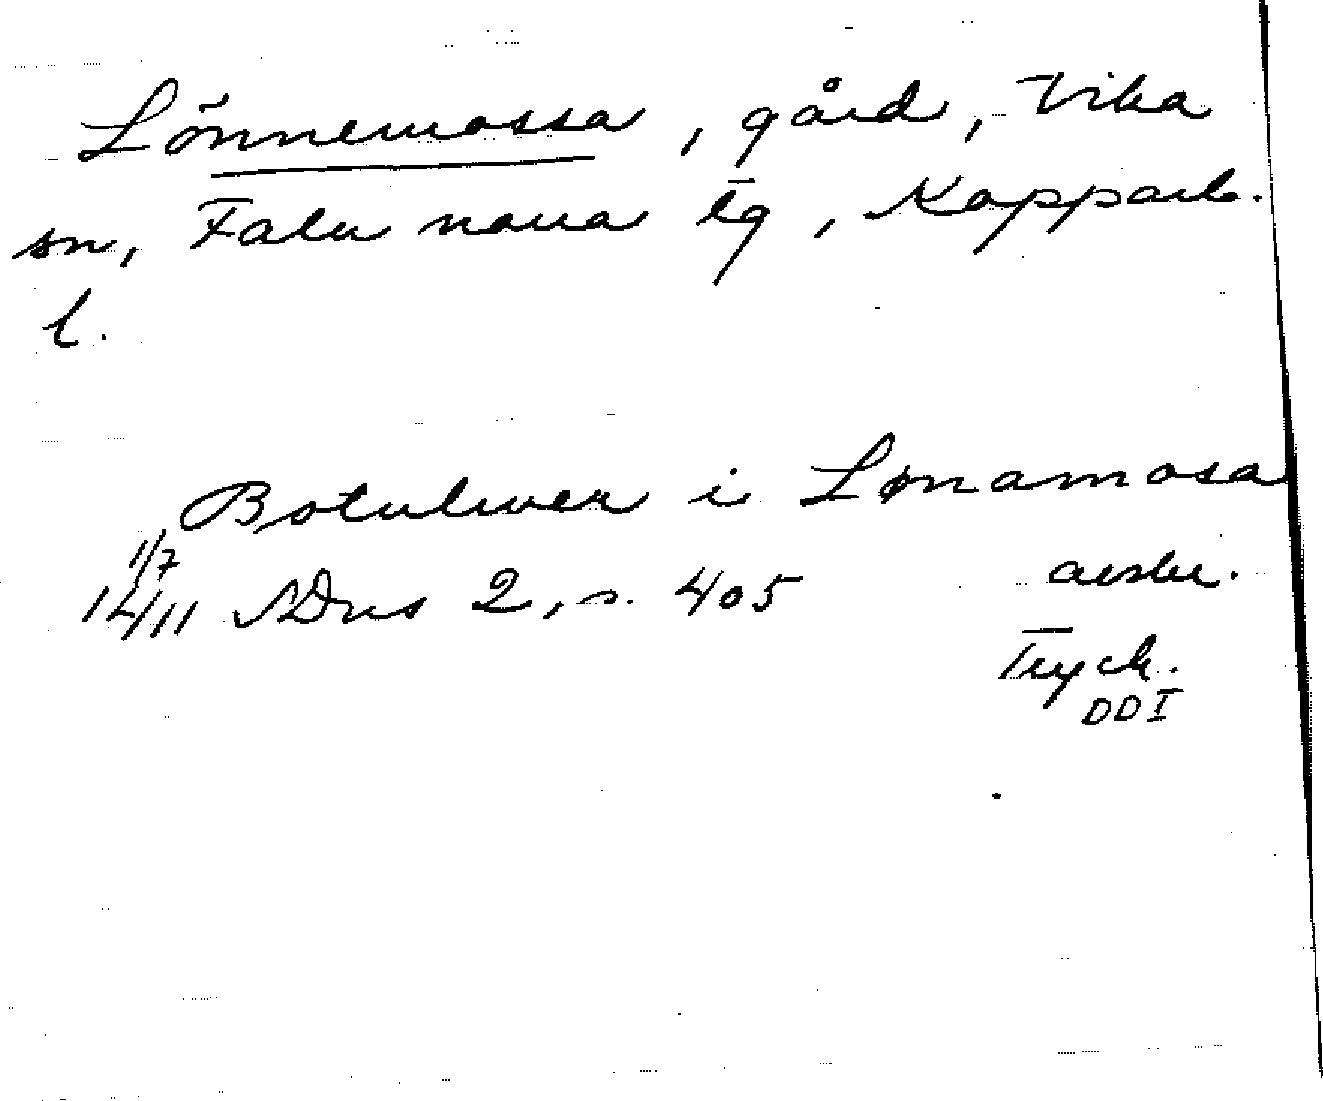 Lönnemossa, gård, Vika
sn, Falu norra tg, Kopparb.
l.
Botulwer i Lønamosa
1/7
1411 SDns 2, s. 405 avskr.
Tryck.
DD I